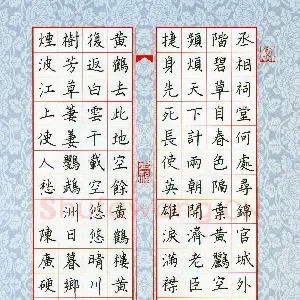 丞相祠堂何處尋錦官城外
階碧草自春色隔葉黃鸝空
頻煩天下計兩朝開濟老臣
捷身先死長使英雄淚滿襟
黃鶴去此地空餘黃鶴樓黃
後返白雲千載空悠悠晴川
樹芳草萋萋鸚鵡洲日暮鄉
煙波江上使人愁 陳廣硬